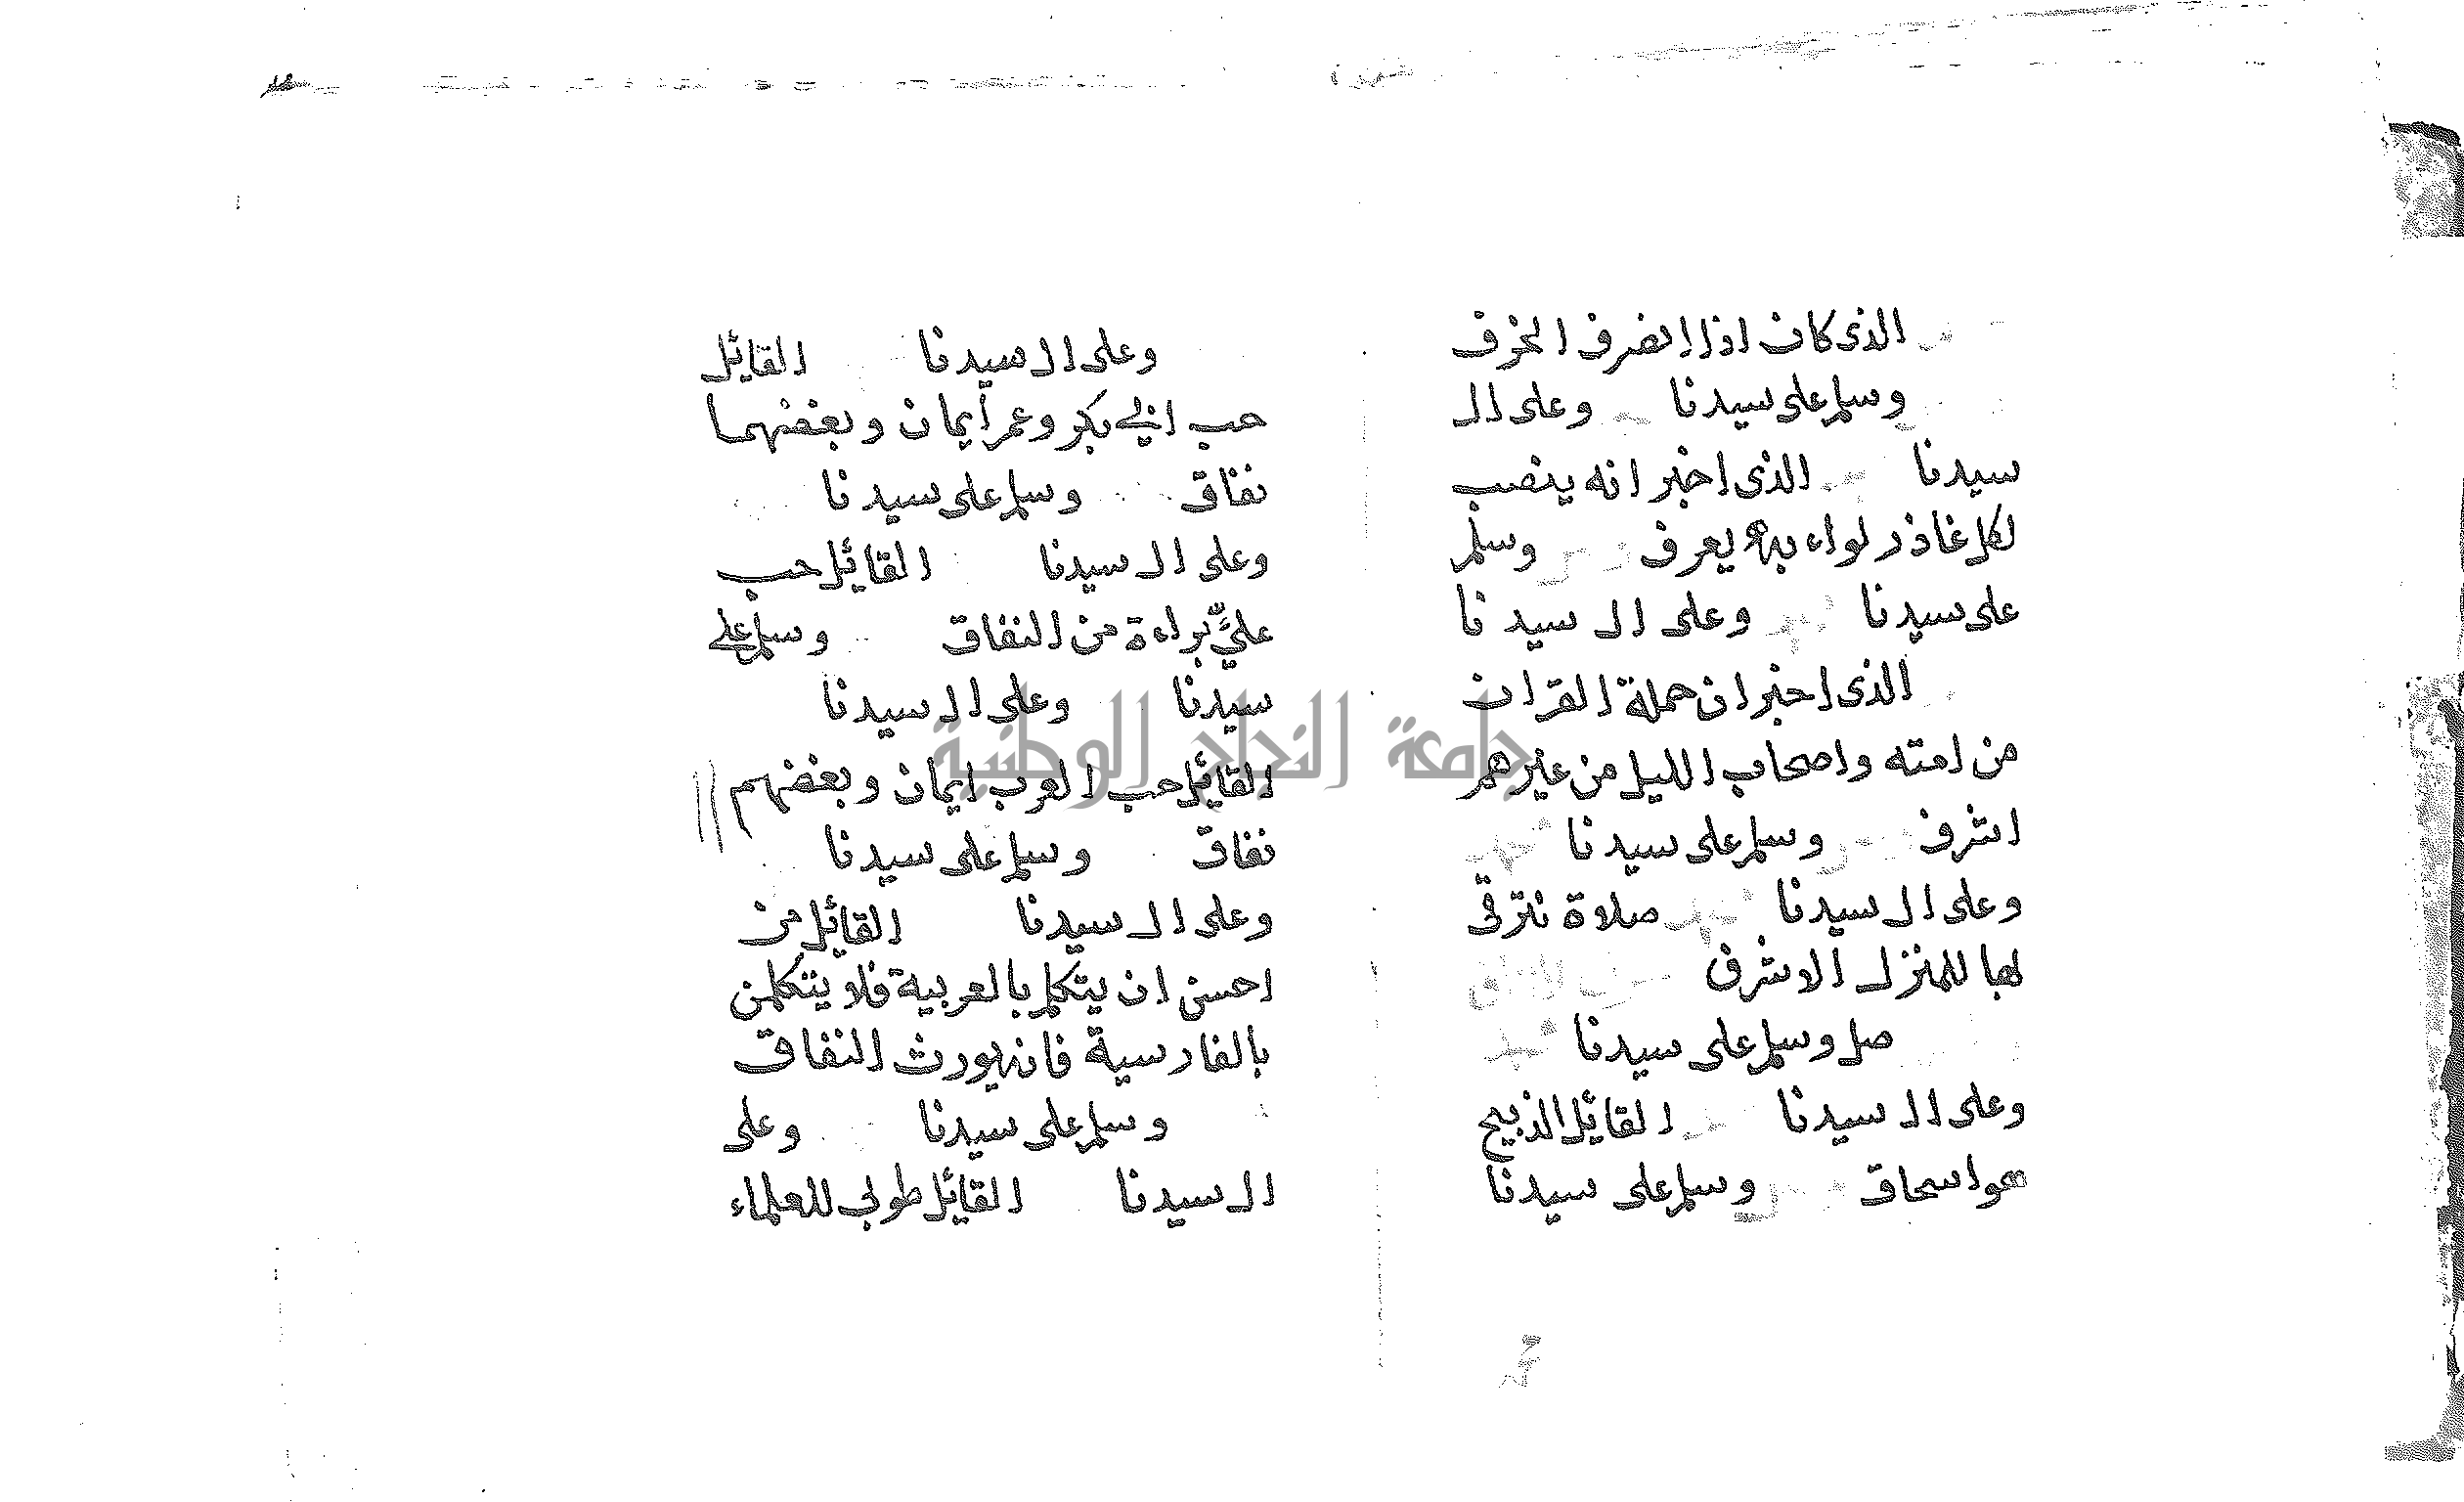 الذى كان اذا انصرف انحرف
وسلم على سيدنا وعلى ال
سيدنا الذى اخبر انه ينصب
لكل غادر لواء به يعرف وسلم
على سيدنا وعلى ال سيدنا
الذى اخبر ان حملة القران
من امته واصحاب الليل من غيرهم
اشرف وسلم على سيدنا
وعلى ال سيدنا صلاة نترقى
بها للمنزل الاشرف
صل وسلم على سيدنا
وعلى ال سيدنا القائل الذبيح
هو اسحاق وسلم على سيدنا
وعلى ال سيدنا القائل
حب ابي بكر وعمر ايمان وبغضهما
نفاق وسلم على سيدنا
وعلى ال سيدنا القائل حب
عليٍّ براءة من النفاق وسلم على
سيدنا وعلى ال سيدنا
القائل حب العرب ايمان وبغضهم
نفاق وسلم على سيدنا
وعلى ال سيدنا القائل من
احسن ان يتكلم بالعربية فلا يتكلمن
بالفارسية فانه يورث النفاق
وسلم على سيدنا وعلى
ال سيدنا القائل طوبى للعلماء
جامعة النجاح الوطنية